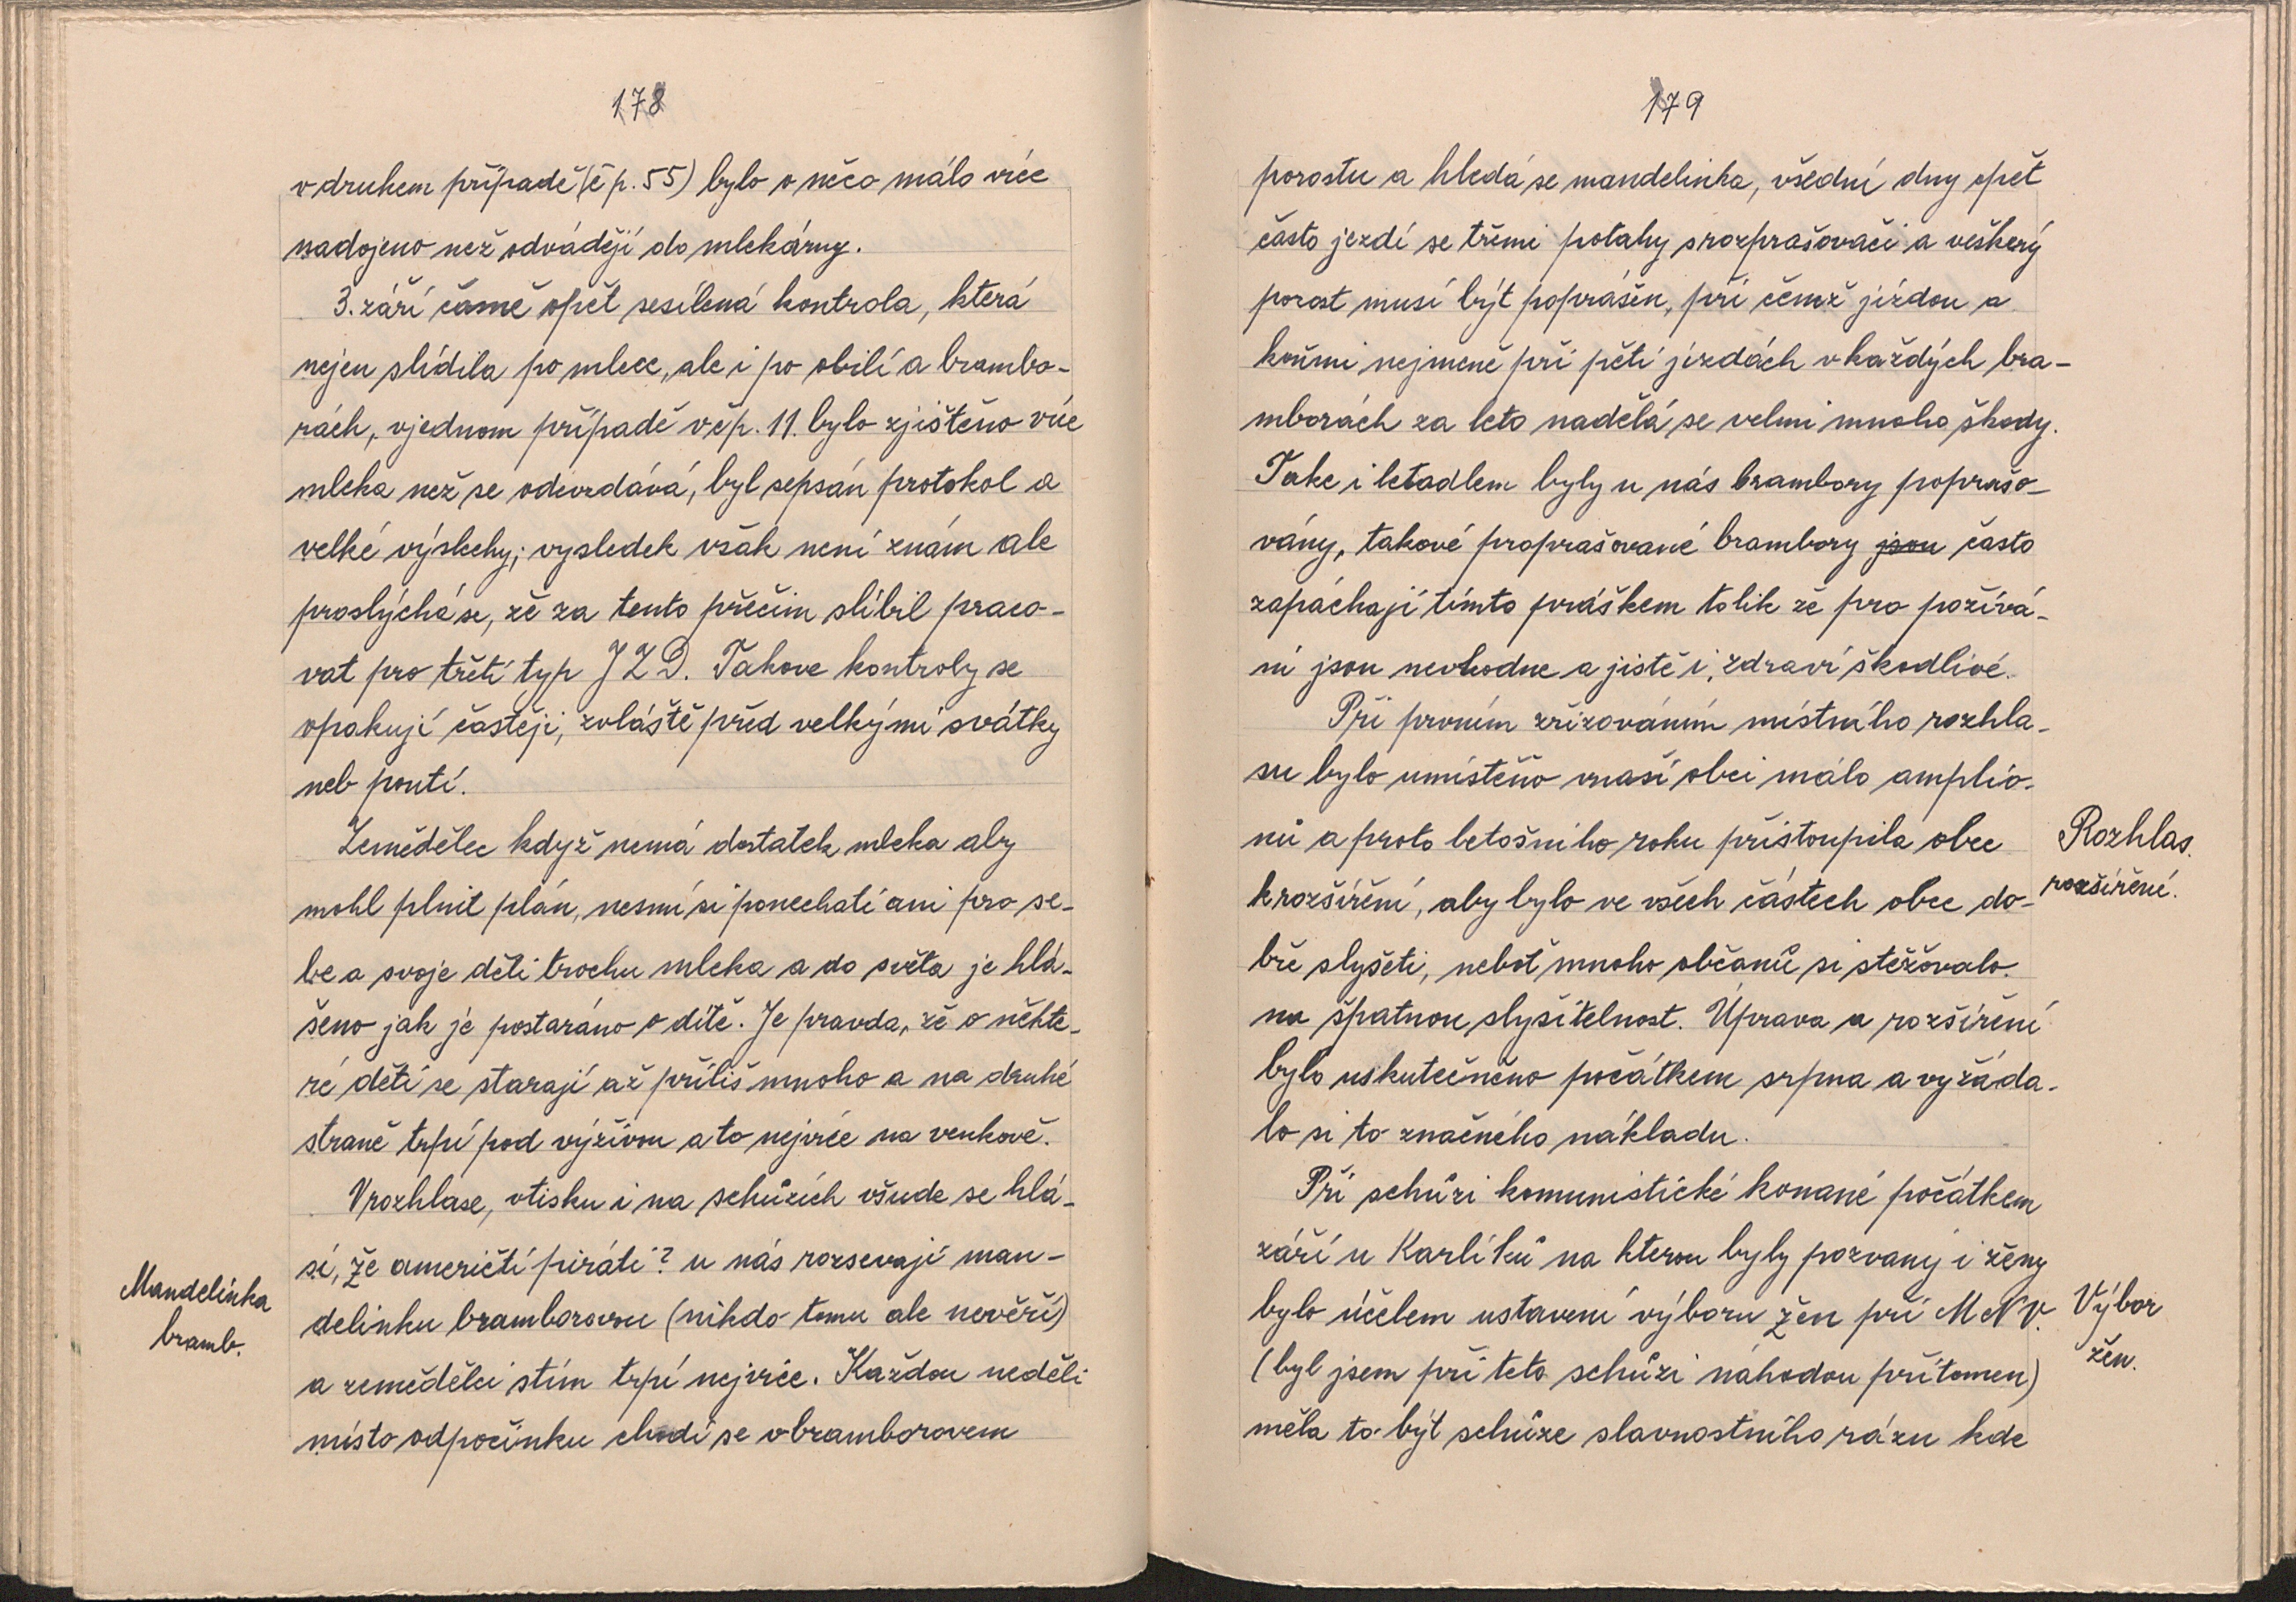 178
v druhem případě (č p. 55) bylo o něco málo více
nadojeno než odvádějí do mlekárny.
3. září časně opět sesílená kontrola, která
nejen slídila po mlece, ale i po obilí a brambo-
rách, v jednom případě v čp. 11. bylo zjištěno více
mleka než se odevzdává, byl sepsán protokol a
velké výslechy; vysledek však není znám ale
proslýchá se, že za tento přečin slíbil praco-
vat pro třetí typ JZD. Takove kontroly se
opakují častěji, zvláště před velkými svátky
neb poutí.
Zemědělec když nemá dostatek mleka aby
mohl plnit plán, nesmí si ponechati ani pro se-
be a svoje děti trochu mleka a do světa je hlá-
šeno jak je postaráno o dítě. Je pravda, že o někte-
ré děti se starají až příliš mnoho a na druhé
straně trpí pod výživou a to nejvíce na venkově.
V rozhlase, v tisku i na schůzích všude se hlá-
sí, že američtí piráti? u nás rozsevají man-
Mandelinka
bramb.
delinku bramborovou (nikdo tomu ale nevěří)
a zemědělci s tím trpí nejvíce. Každou neděli
místo odpočinku chodí se v bramborovem
179
porostu a hledá se mandelinka, všední dny opět
často jezdí se třemi potahy s rozprašovači a veškerý
porost musí být poprášen, při čemž jízdou a
koňmi nejmeně při pěti jízdách v každých bra-
mborách za leto nadělá se velmi mnoho škody.
Take i letadlem byly u nás brambory poprašo-
vány, takové proprašované brambory jsou často
zapáchají tímto práškem tolik že pro požívá-
ní jsou nevhodne a jistě i, zdraví škodlivé.
Při prvním zřizováním místního rozhla-
su bylo umístěno v naší obci málo amplio-
nů a proto letošního roku přistoupila obec
Rozhlas.
rozšíření.
k rozšíření, aby bylo ve všech částech obce do-
bře slyšeti, neboť mnoho občanů si stěžovalo
na špatnou slyšitelnost. Úprava a rozšíření
bylo uskutečněno počátkem srpna a vyžáda-
lo si to značného nákladu.
Při schůzi komunistické konané počátkem
září u Karlíků na kterou byly pozvaný i ženy
bylo účelem ustavení výboru žen při M N V.
Výbor
žen.
(byl jsem při teto schůzi náhodou přítomen)
měla to být schůze slavnostního rázu kde